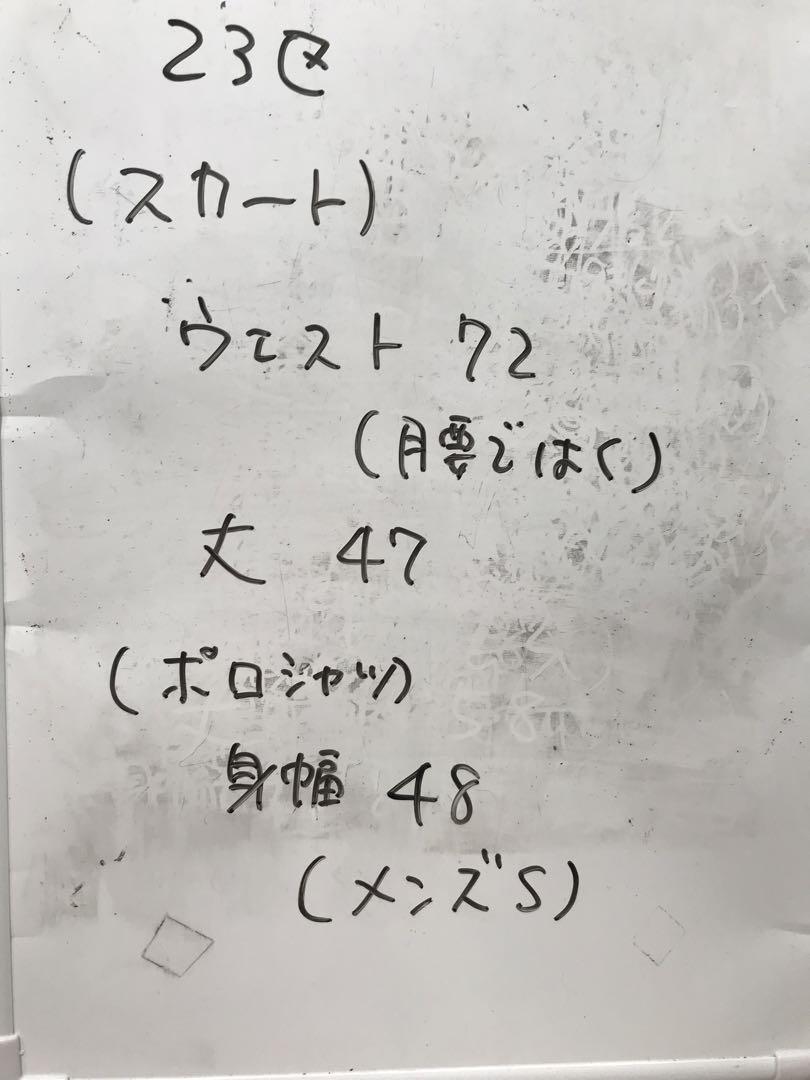 23区
(スカート)
ウエスト 72
(腰ではく)
丈 47
(ポロシャツ)
身幅 48
(メンズS)